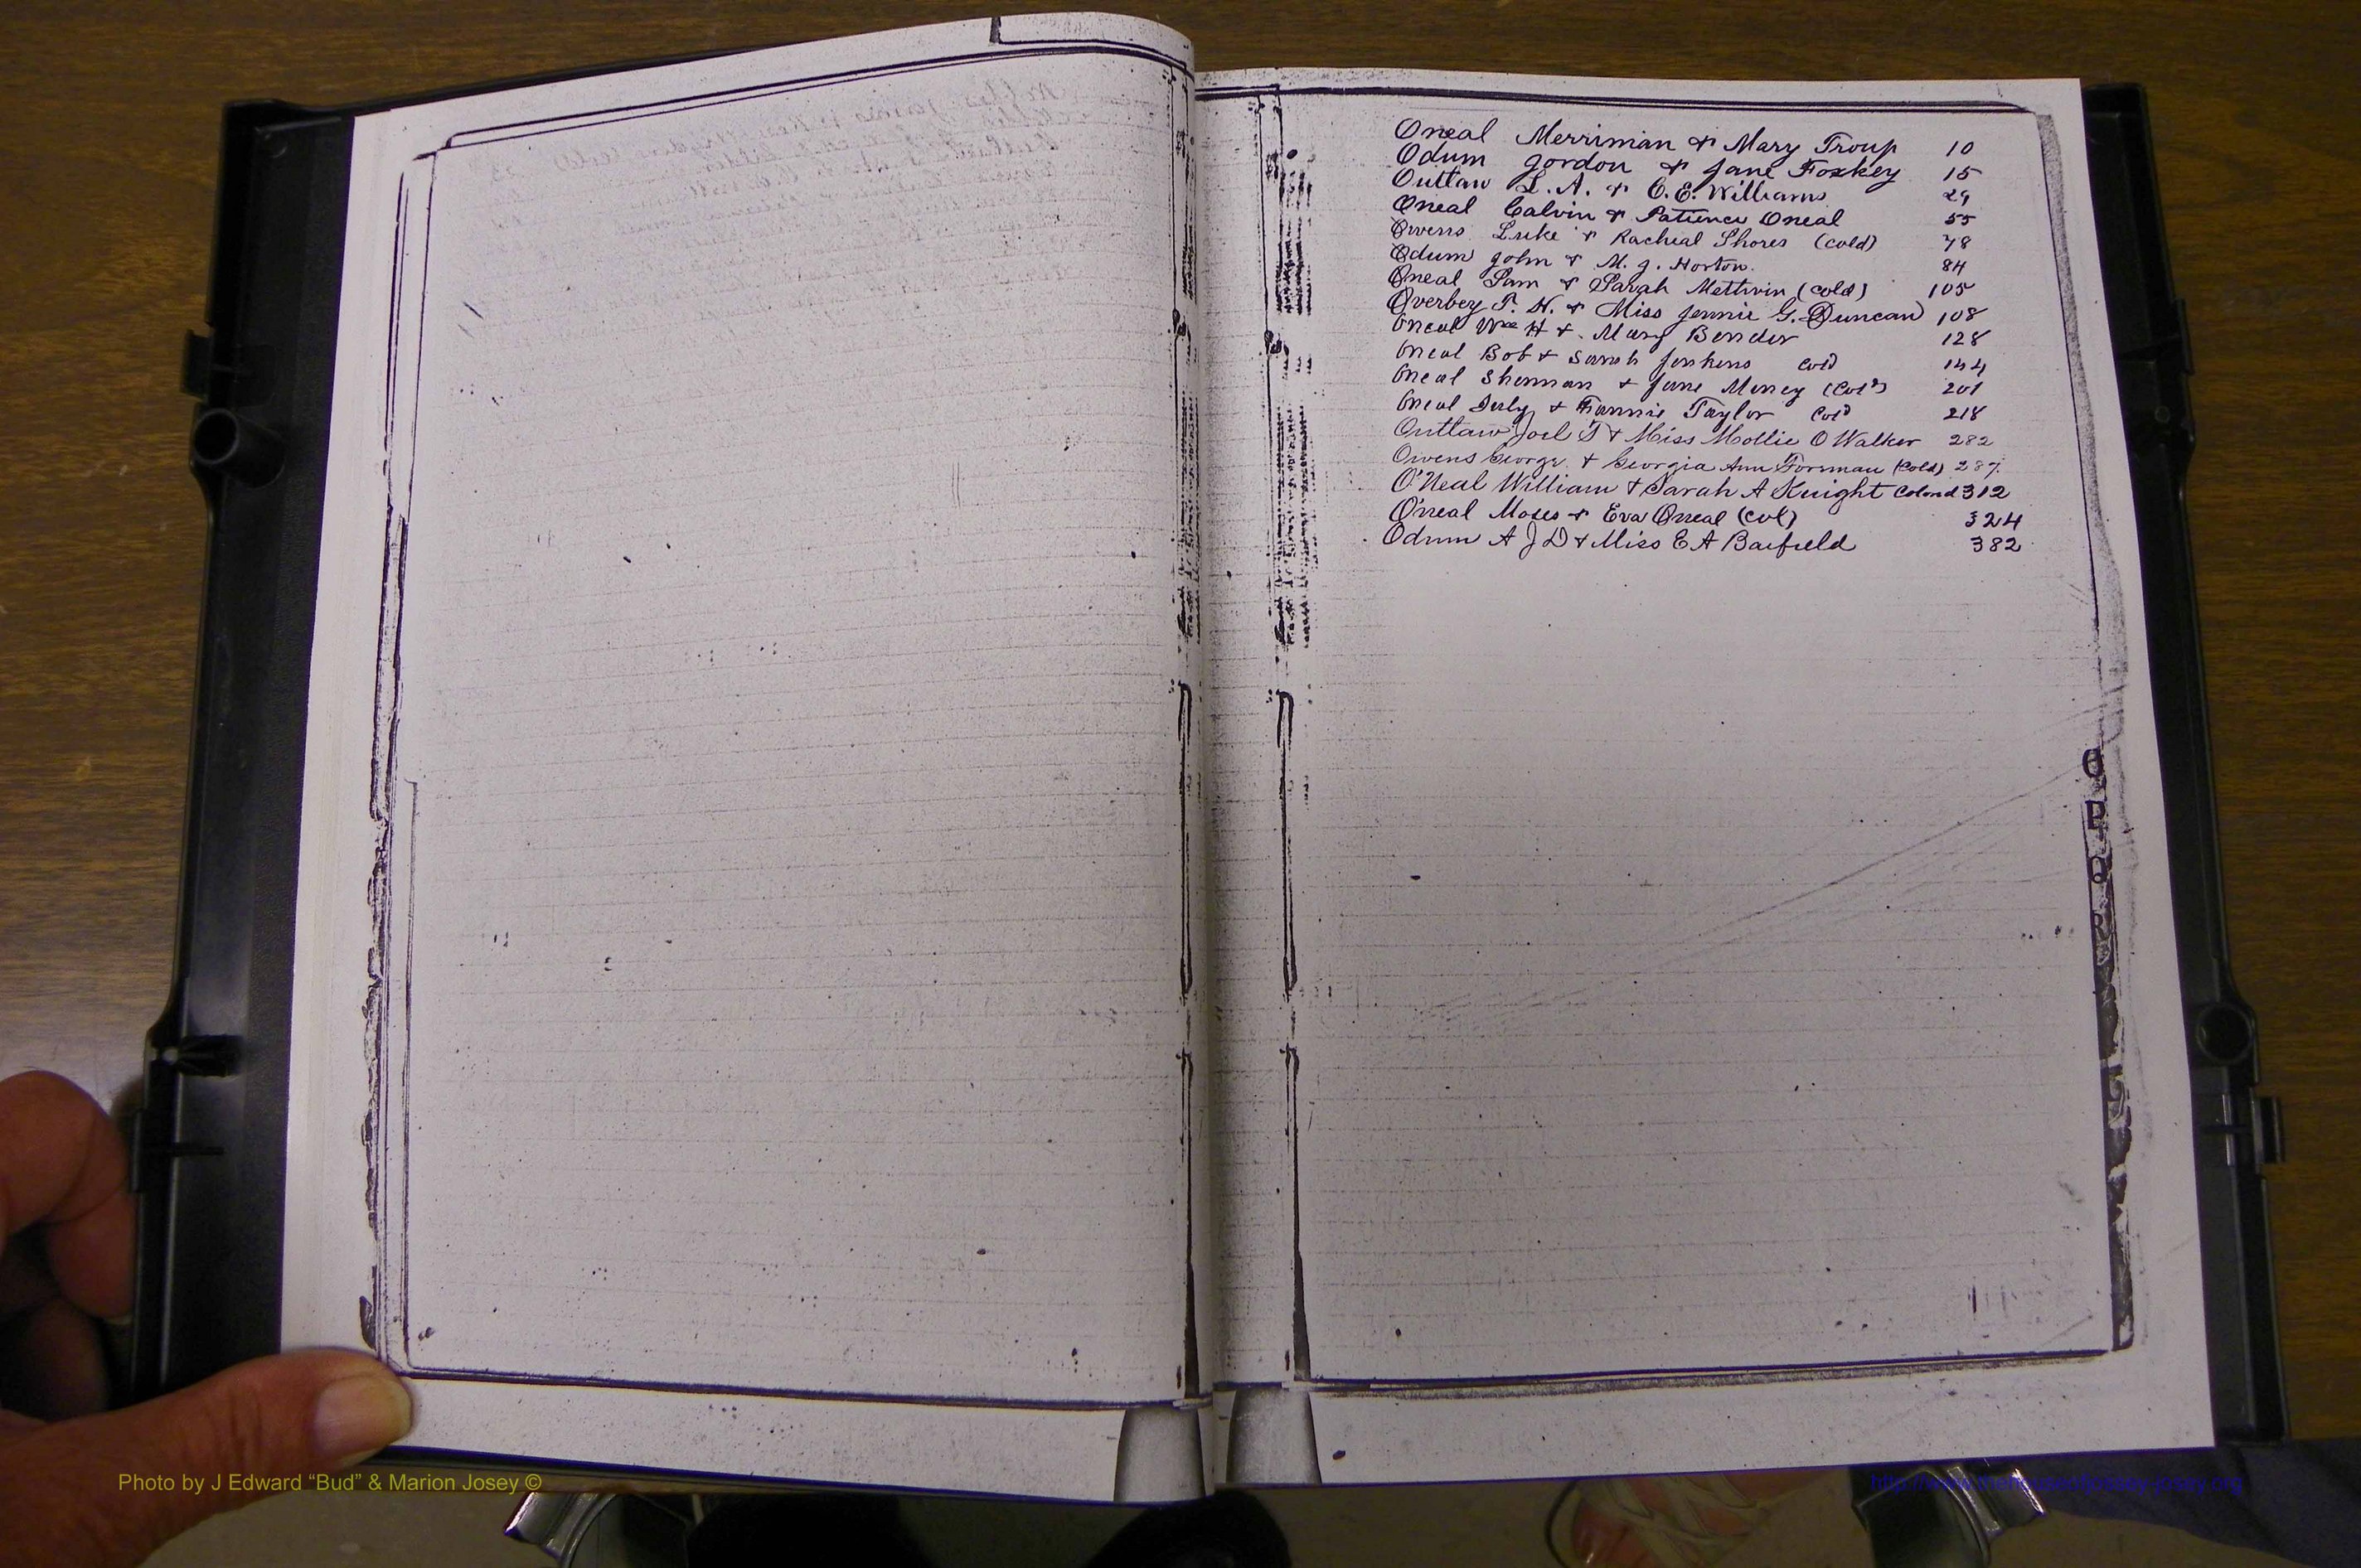 Oneal Merriman & Mary Troup 10
Odum Gordon & Jane Foskey 15
Outlaw L. A. & C. E. Williams 29
Oneal Calvin & Patience Oneal 55
Owens Luke & Racheal Shores (Cold) 78
Odum John & M. J. Horton. 84
Oneal Sam & Sarah Methvin (Cold) 105
Overbey T. H. & Miss Jennie G. Duncan 108
Oneal Wm H & Mary Bender 128
Oneal Bob & Sarah Jenkins Cold 144
Oneal Sherman & Jane Money (Cold) 201
Oneal July & Fannie Taylor Cold 218
Outlaw Joel T & Miss Mollie O Walker 282
Owens George & Georgia Ann Forman (Cold) 287
O'Neal William & Sarah A Knight Colord 312
O'neal Moses & Eva Oneal (Col) 324
Odum A J D & Miss E A Barfield 382
O
P
Q
R
Photo by J Edward “Bud” & Marion Josey ©
http://www.thehouseofjossey-josey.org